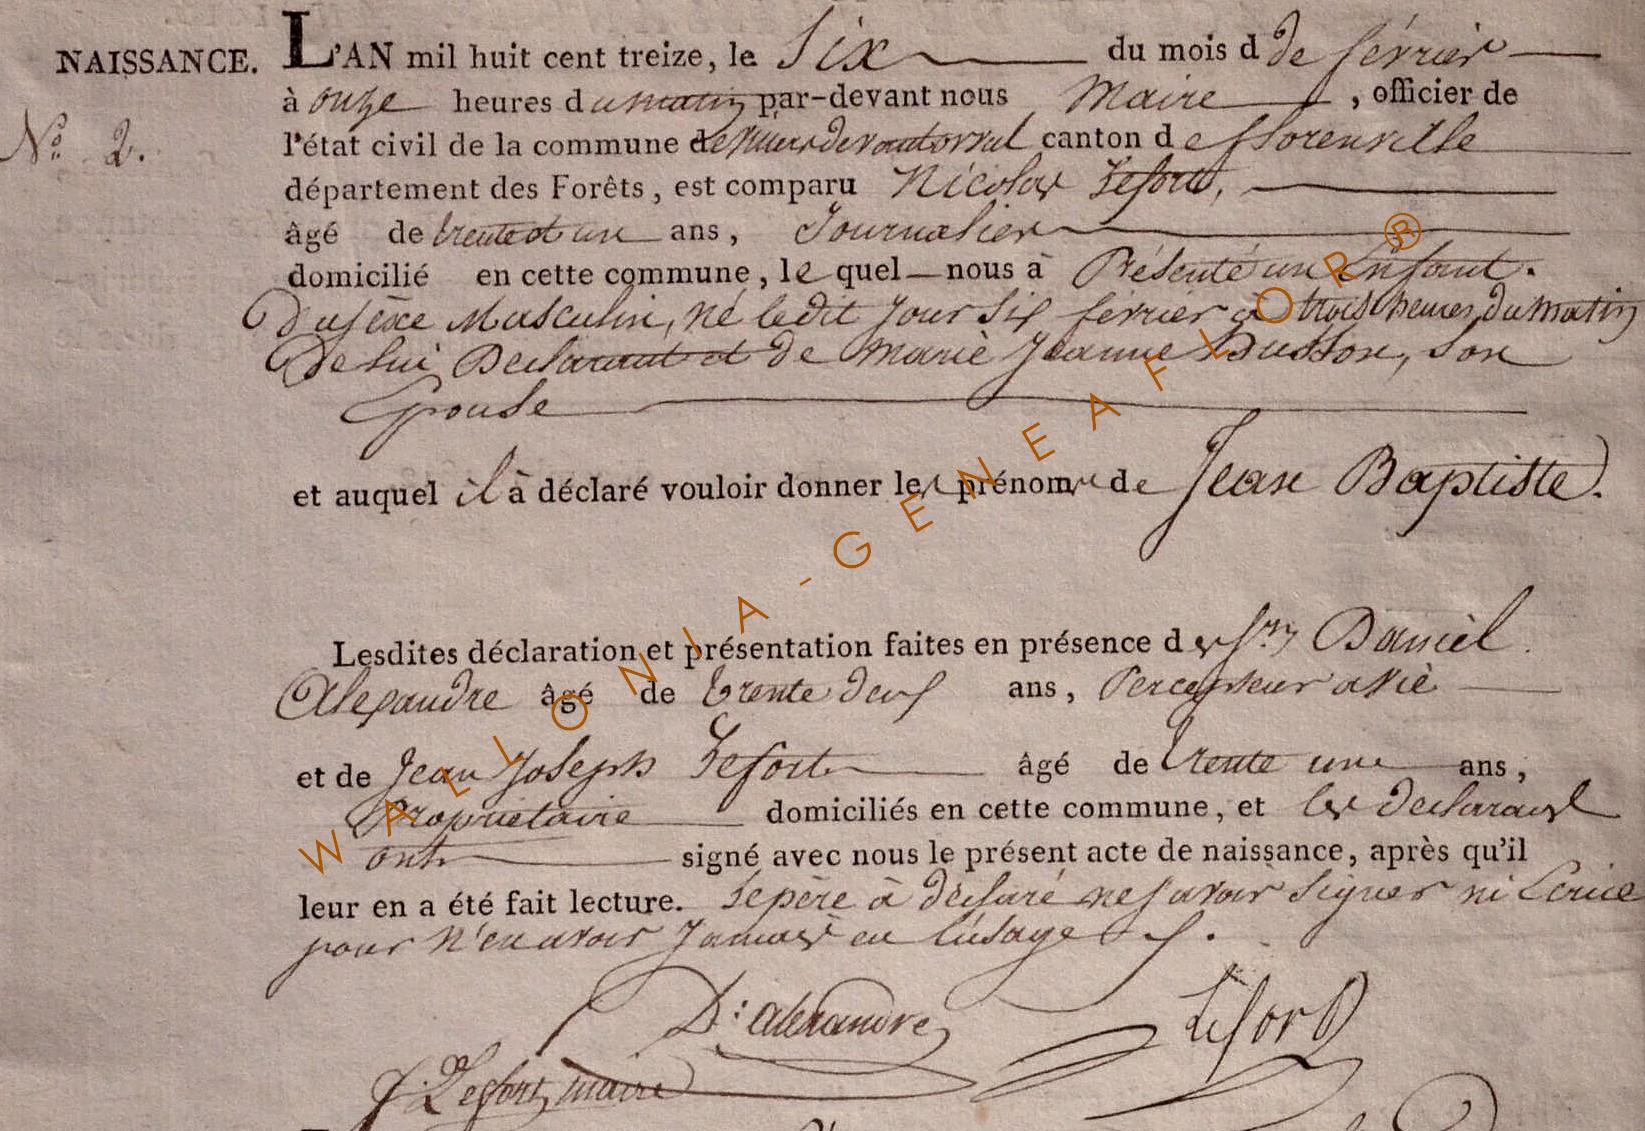 NAISSANCE. L'AN mil huit cent treize, le Six du mois d de février
à onze heures du matin par-devant nous Maire , officier de
N.º 2. l'état civil de la commune de canton de florenville
département des Forêts, est comparu Nicolas Lefort,
âgé de trente et un ans, Journalier
domicilié en cette commune, le quel nous à Présenté un Enfant.
Du sèxe Masculin, né ledit Jour Six février à trois heures du matin
De lui Declarant et de Marie Jeanne Dusson, son
Epouse
et auquel il à déclaré vouloir donner les prénoms de Jean Baptiste.
Lesdites déclaration et présentation faites en présence des srs Daniel
Alexandre âgé de trente deux ans, Percepteur a vie
et de Jean Joseph Lefort âgé de trente un ans,
Propriétaire domiciliés en cette commune, et les declarans
ont signé avec nous le présent acte de naissance, après qu'il
leur en a été fait lecture. Le père à déclaré ne savoir signer ni Ecrire
pour n'en avoir Jamais eu l'usage
D: alexandre Lefort
J: Lefort, maire
WALLONIA-GENEAFLOR®